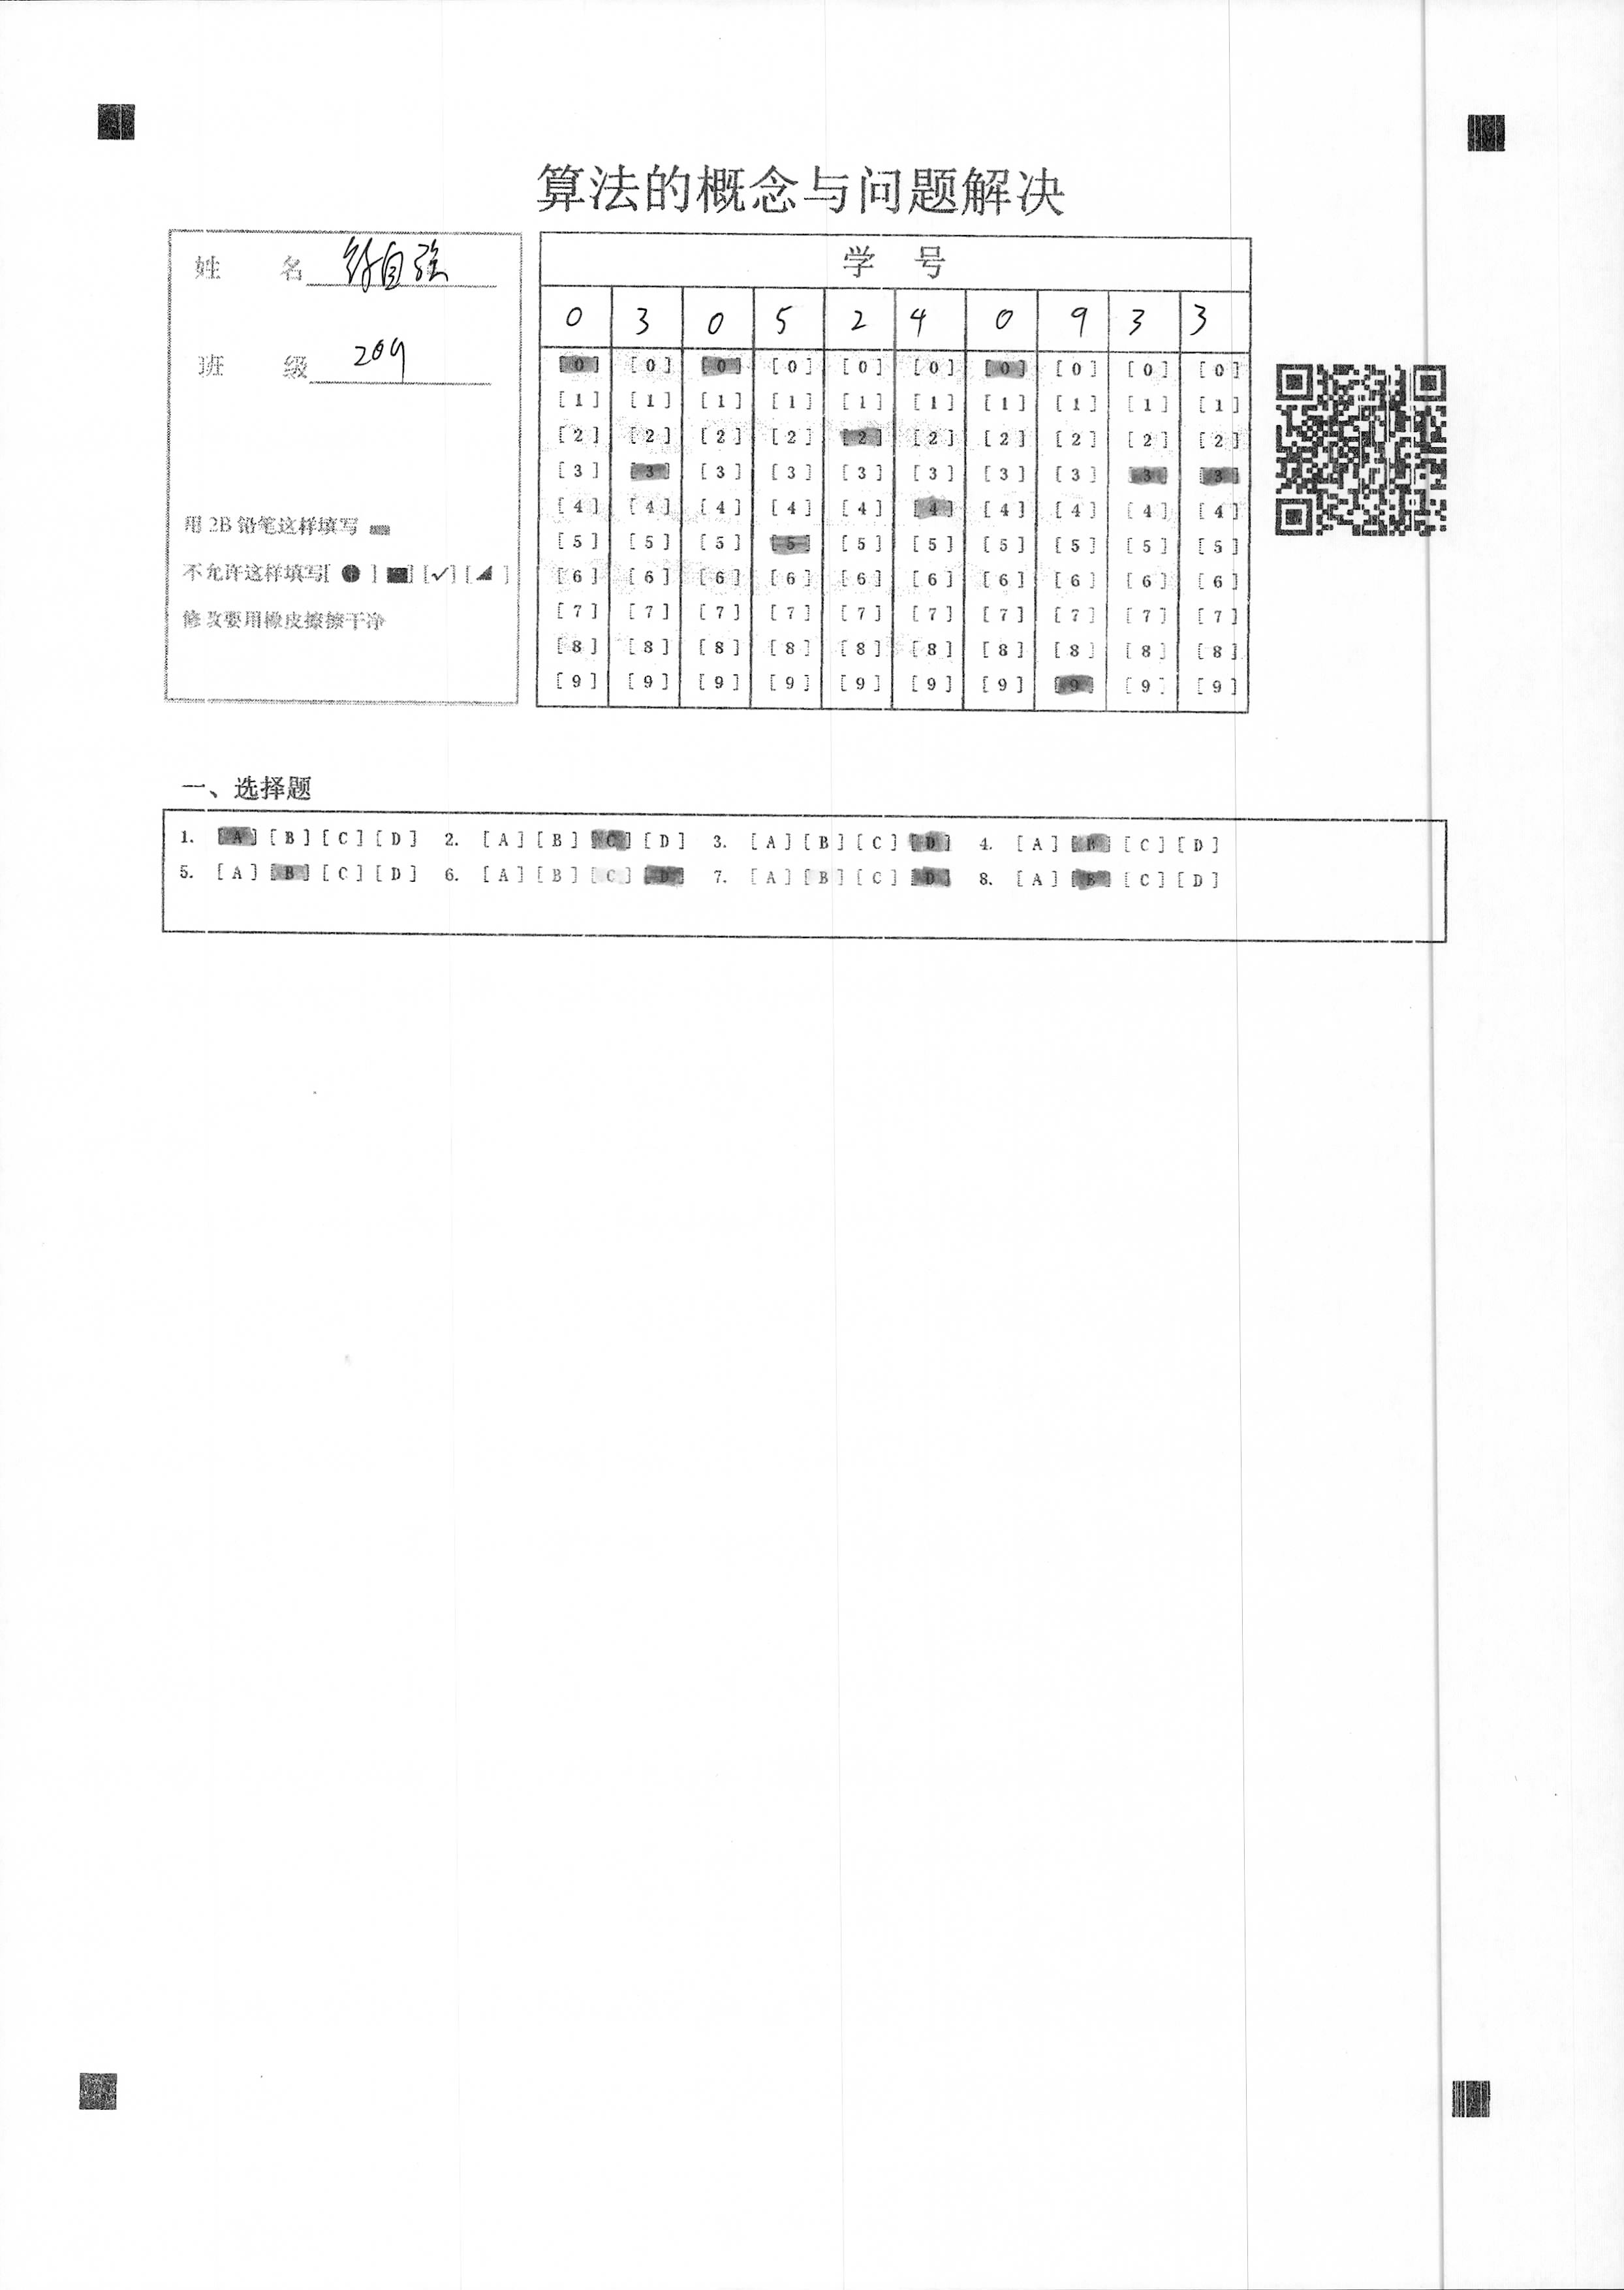 算法的概念与问题解决
姓 名 自强
班 级 209
用2B铅笔这样填写
不允许这样填写[ ● ] [■] [✓] [◢ ]
修改要用橡皮擦擦干净
学 号
0 3 0 5 2 4 0 9 3 3
[0] [0] [0] [0] [0] [0] [0] [0] [0] [0]
[1] [1] [1] [1] [1] [1] [1] [1] [1] [1]
[2] [2] [2] [2] [2] [2] [2] [2] [2] [2]
[3] [3] [3] [3] [3] [3] [3] [3] [3] [3]
[4] [4] [4] [4] [4] [4] [4] [4] [4] [4]
[5] [5] [5] [5] [5] [5] [5] [5] [5] [5]
[6] [6] [6] [6] [6] [6] [6] [6] [6] [6]
[7] [7] [7] [7] [7] [7] [7] [7] [7] [7]
[8] [8] [8] [8] [8] [8] [8] [8] [8] [8]
[9] [9] [9] [9] [9] [9] [9] [9] [9] [9]
一、选择题
1. [A] [B] [C] [D] 2. [A] [B] [C] [D] 3. [A] [B] [C] [D] 4. [A] [B] [C] [D]
5. [A] [B] [C] [D] 6. [A] [B] [C] [D] 7. [A] [B] [C] [D] 8. [A] [B] [C] [D]